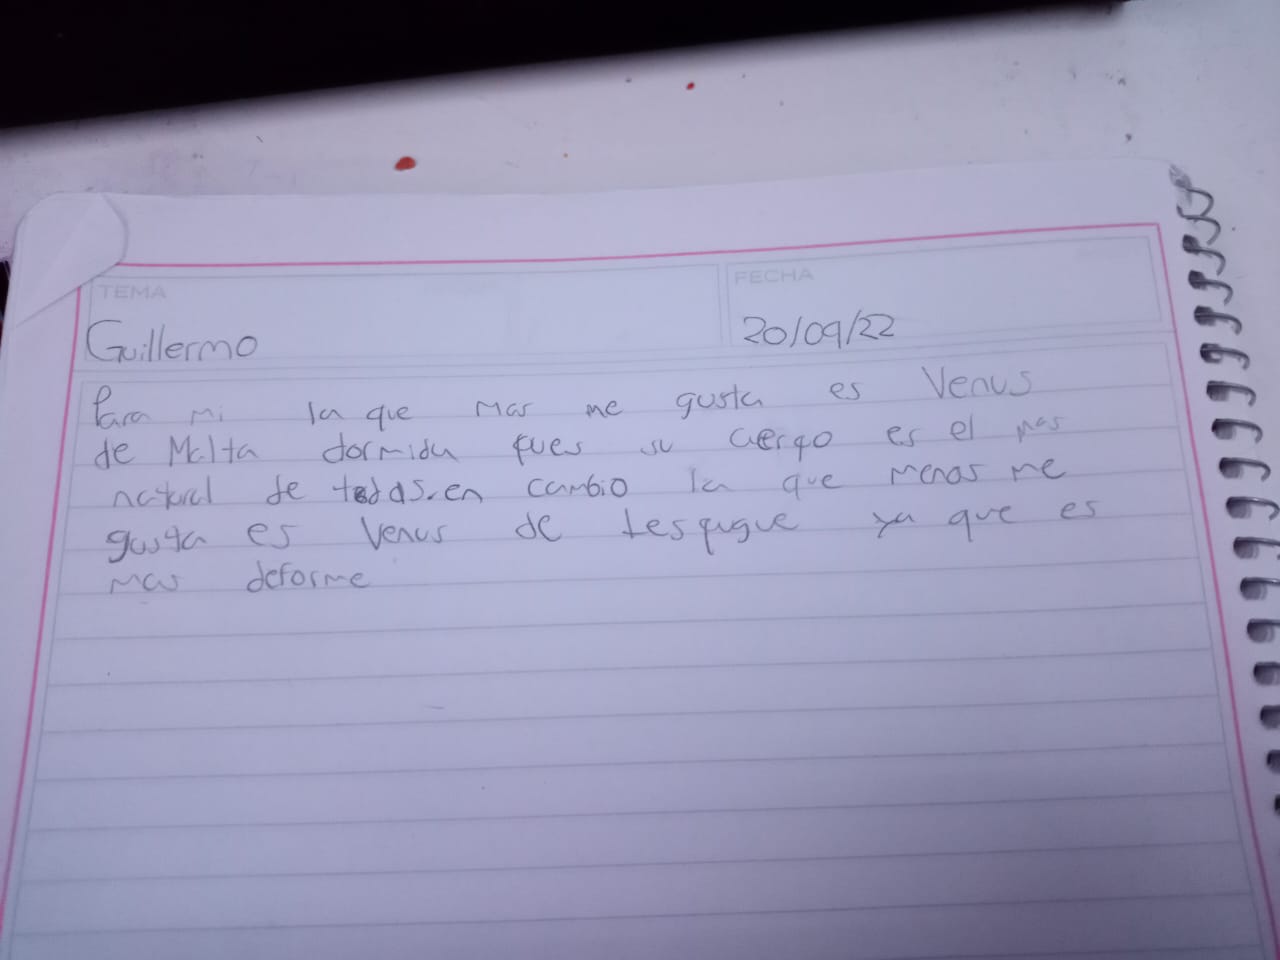 TEMA
FECHA
Guillermo
20/09/22
Para mi la que mas me gusta es Venus
de Malta dormida pues su cuerpo es el mas
natural de todas. en cambio la que menos me
gusta es Venus de Lespugue ya que es
mas deforme